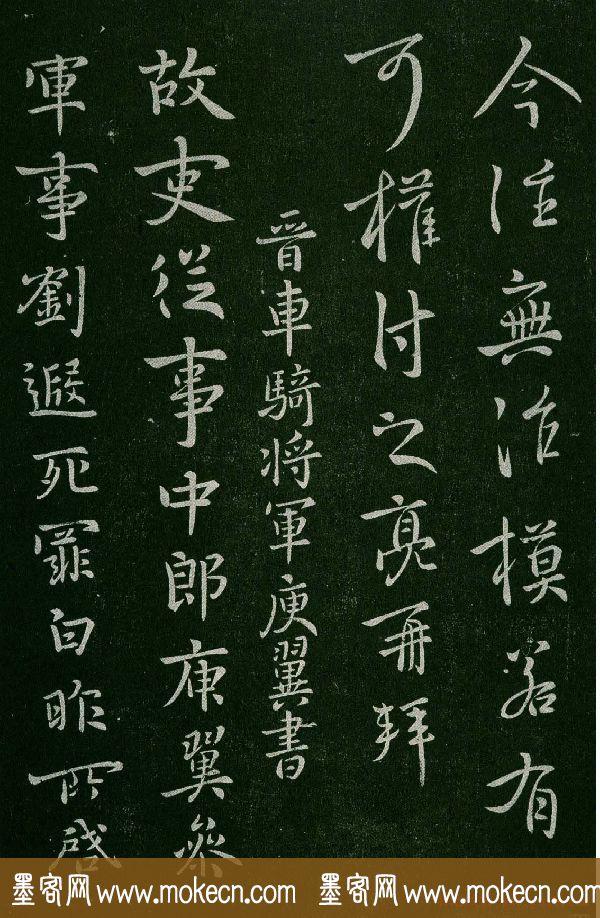 今往無治模若有
可權付之亮再拜
晉車騎將軍庾翼書
故吏從事中郎庾翼參
軍事劉遐死罪白昨所啓
墨客网 www.mokecn.com 墨客网 www.mokecn.com